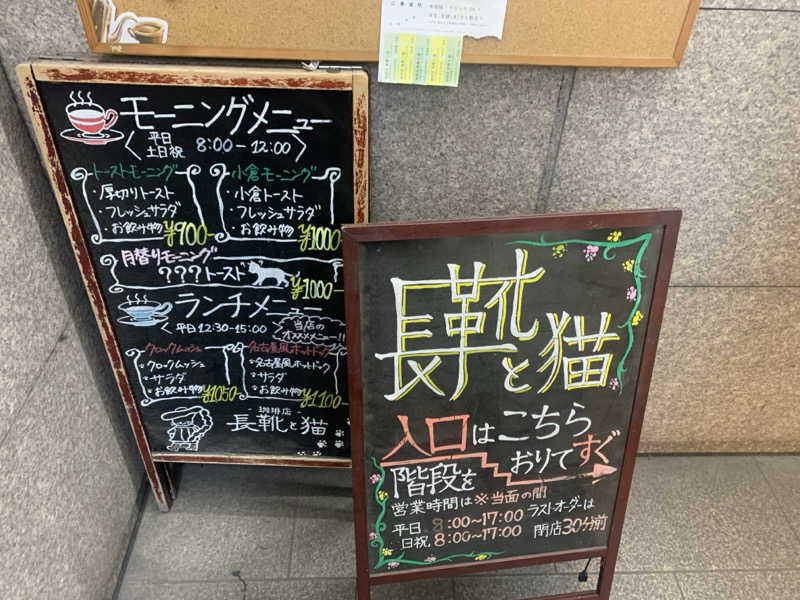 モーニングメニュー
平日
土日祝 8:00-12:00
トーストモーニング
・厚切りトースト
・フレッシュサラダ
・お飲み物 ¥900-
小倉モーニング
・小倉トースト
・フレッシュサラダ
・お飲み物 ¥1000-
月替りモーニング
???トースト ¥1000-
ランチメニュー
平日 12:30-15:00
当店の
オススメメニュー!!
クロックムッシュ
・クロックムッシュ
・サラダ
・お飲み物 ¥1050-
名古屋風ホットドッグ
・名古屋風ホットドッグ
・サラダ
・お飲み物 ¥1100-
珈琲店
長靴と猫
長靴と猫
入口はこちら
階段をおりてすぐ
営業時間は※当面の間
平日 8:00~17:00
日祝 8:00~17:00
ラストオーダーは
閉店30分前